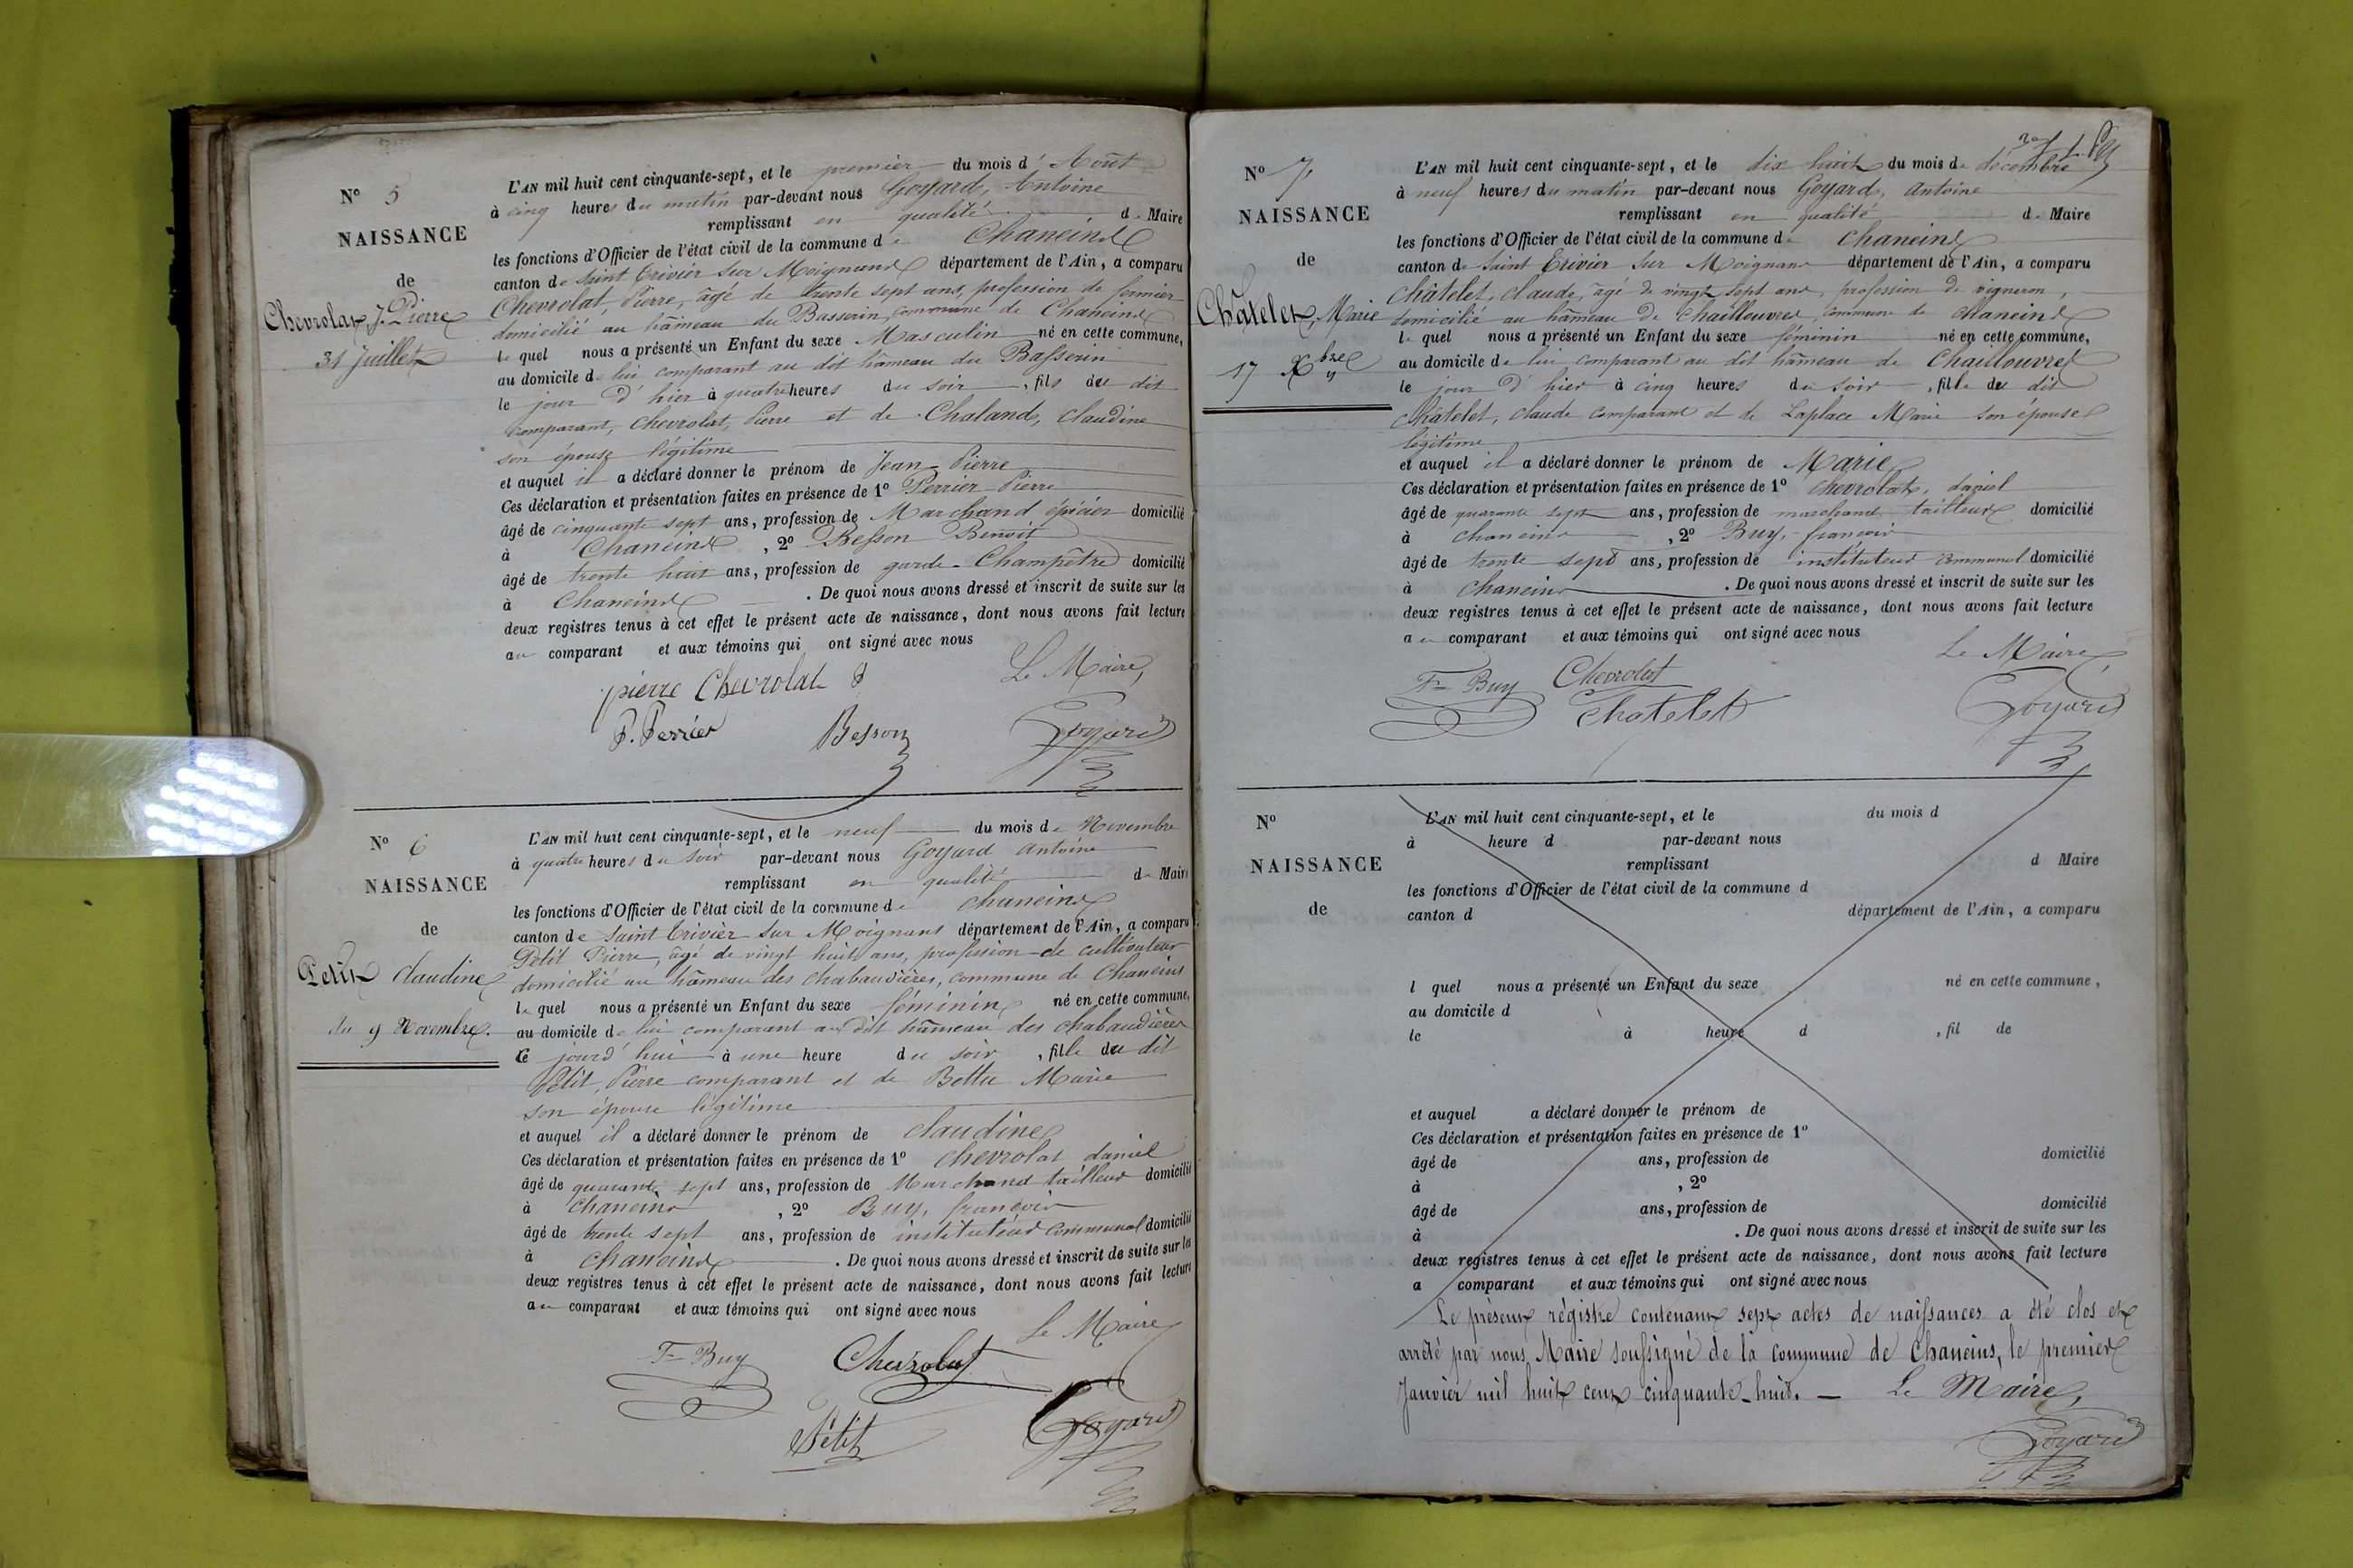 N° 5
NAISSANCE
de
Chevrolat, J. Pierre
31 juillet
L'AN mil huit cent cinquante-sept, et le premier du mois d'Août
à cinq heures du matin par-devant nous Goyard, Antoine
remplissant en qualité de Maire
les fonctions d'Officier de l'état civil de la commune de Chaneins
canton de Saint Trivier sur Moignans département de l'Ain, a comparu
Chevrolat, Pierre, âgé de trente sept ans, profession de fermier
domicilié au hâmeau du Basserin, commune de Chaneins
lequel nous a présenté un Enfant du sexe Masculin né en cette commune,
au domicile de lui comparant au dit hâmeau du Basserin
le jour d'hier à quatre heures du soir, fils du dit
comparant, Chevrolat, Pierre et de Chaland, Claudine
son épouse légitime
et auquel il a déclaré donner le prénom de Jean-Pierre
Ces déclaration et présentation faites en présence de 1° Perrier Pierre
âgé de cinquante sept ans, profession de Marchand épicier domicilié
à Chaneins, 2° Besson Benoit
âgé de trente huit ans, profession de garde-Champêtre domicilié
à Chaneins. De quoi nous avons dressé et inscrit de suite sur les
deux registres tenus à cet effet le présent acte de naissance, dont nous avons fait lecture
au comparant et aux témoins qui ont signé avec nous
Le Maire,
pierre Chevrolat
P. Perrier Besson Goyard
N° 6
NAISSANCE
de
Petit Claudine
du 9 Novembre.
L'AN mil huit cent cinquante-sept, et le neuf du mois de Novembre
à quatre heures du soir par-devant nous Goyard Antoine
remplissant en qualité de Maire
les fonctions d'Officier de l'état civil de la commune de Chaneins
canton de Saint Trivier sur Moignans département de l'Ain, a comparu
Petit Pierre, âgé de vingt huit ans, profession de cultivateur
domicilié au hâmeau des chabaudières, commune de Chaneins
lequel nous a présenté un Enfant du sexe féminin né en cette commune,
au domicile de lui comparant au dit hâmeau des chabaudières
ce jourd'hui à une heure du soir, fille du dit
Petit, Pierre comparant et de Bettu Marie
son épouse légitime
et auquel il a déclaré donner le prénom de Claudine
Ces déclaration et présentation faites en présence de 1° Chevrolat daniel
âgé de quarante sept ans, profession de Marchand tailleur domicilié
à Chaneins, 2° Buy, françois
âgé de trente sept ans, profession de instituteur communal domicilié
à Chaneins. De quoi nous avons dressé et inscrit de suite sur les
deux registres tenus à cet effet le présent acte de naissance, dont nous avons fait lecture
au comparant et aux témoins qui ont signé avec nous
Le Maire
F= Buy Chevrolat
Petit Goyard
N° 7
NAISSANCE
de
Châtelet, Marie
17 Xbre
L'AN mil huit cent cinquante-sept, et le dix huit du mois de décembre
à neuf heures du matin par-devant nous Goyard, Antoine
remplissant en qualité de Maire
les fonctions d'Officier de l'état civil de la commune de Chaneins
canton de Saint Trivier sur Moignans département de l'Ain, a comparu
Châtelet, claude, âgé de vingt sept ans, profession de vigneron,
domicilié au hâmeau de Chaillouvres, commune de Chaneins
lequel nous a présenté un Enfant du sexe féminin né en cette commune,
au domicile de lui comparant au dit hâmeau de Chaillouvres
le jour d'hier à cinq heures du soir, fille du dit
Châtelet, claude comparant et de Laplace Marie son épouse
légitime
et auquel il a déclaré donner le prénom de Marie
Ces déclaration et présentation faites en présence de 1° Chevrolat, daniel
âgé de quarante sept ans, profession de marchand tailleur domicilié
à chaneins, 2° Buy, françois
âgé de trente sept ans, profession de instituteur communal domicilié
à chaneins. De quoi nous avons dressé et inscrit de suite sur les
deux registres tenus à cet effet le présent acte de naissance, dont nous avons fait lecture
au comparant et aux témoins qui ont signé avec nous
Le Maire,
F= Buy Chevrolat
Chatelet Goyard
N°
NAISSANCE
de
L'AN mil huit cent cinquante-sept, et le du mois d
à heure d par-devant nous
remplissant d Maire
les fonctions d'Officier de l'état civil de la commune d
canton d département de l'Ain, a comparu
l quel nous a présenté un Enfant du sexe né en cette commune,
au domicile d
le à heure d , fil de
et auquel a déclaré donner le prénom de
Ces déclaration et présentation faites en présence de 1°
âgé de ans, profession de domicilié
à , 2°
âgé de ans, profession de domicilié
à . De quoi nous avons dressé et inscrit de suite sur les
deux registres tenus à cet effet le présent acte de naissance, dont nous avons fait lecture
a comparant et aux témoins qui ont signé avec nous
Le présent régistre contenant sept actes de naissances a été clos et
arrêté par nous Maire soussigné de la commune de Chaneins, le premier
Janvier mil huit cent cinquante-huit. — Le Maire,
Goyard